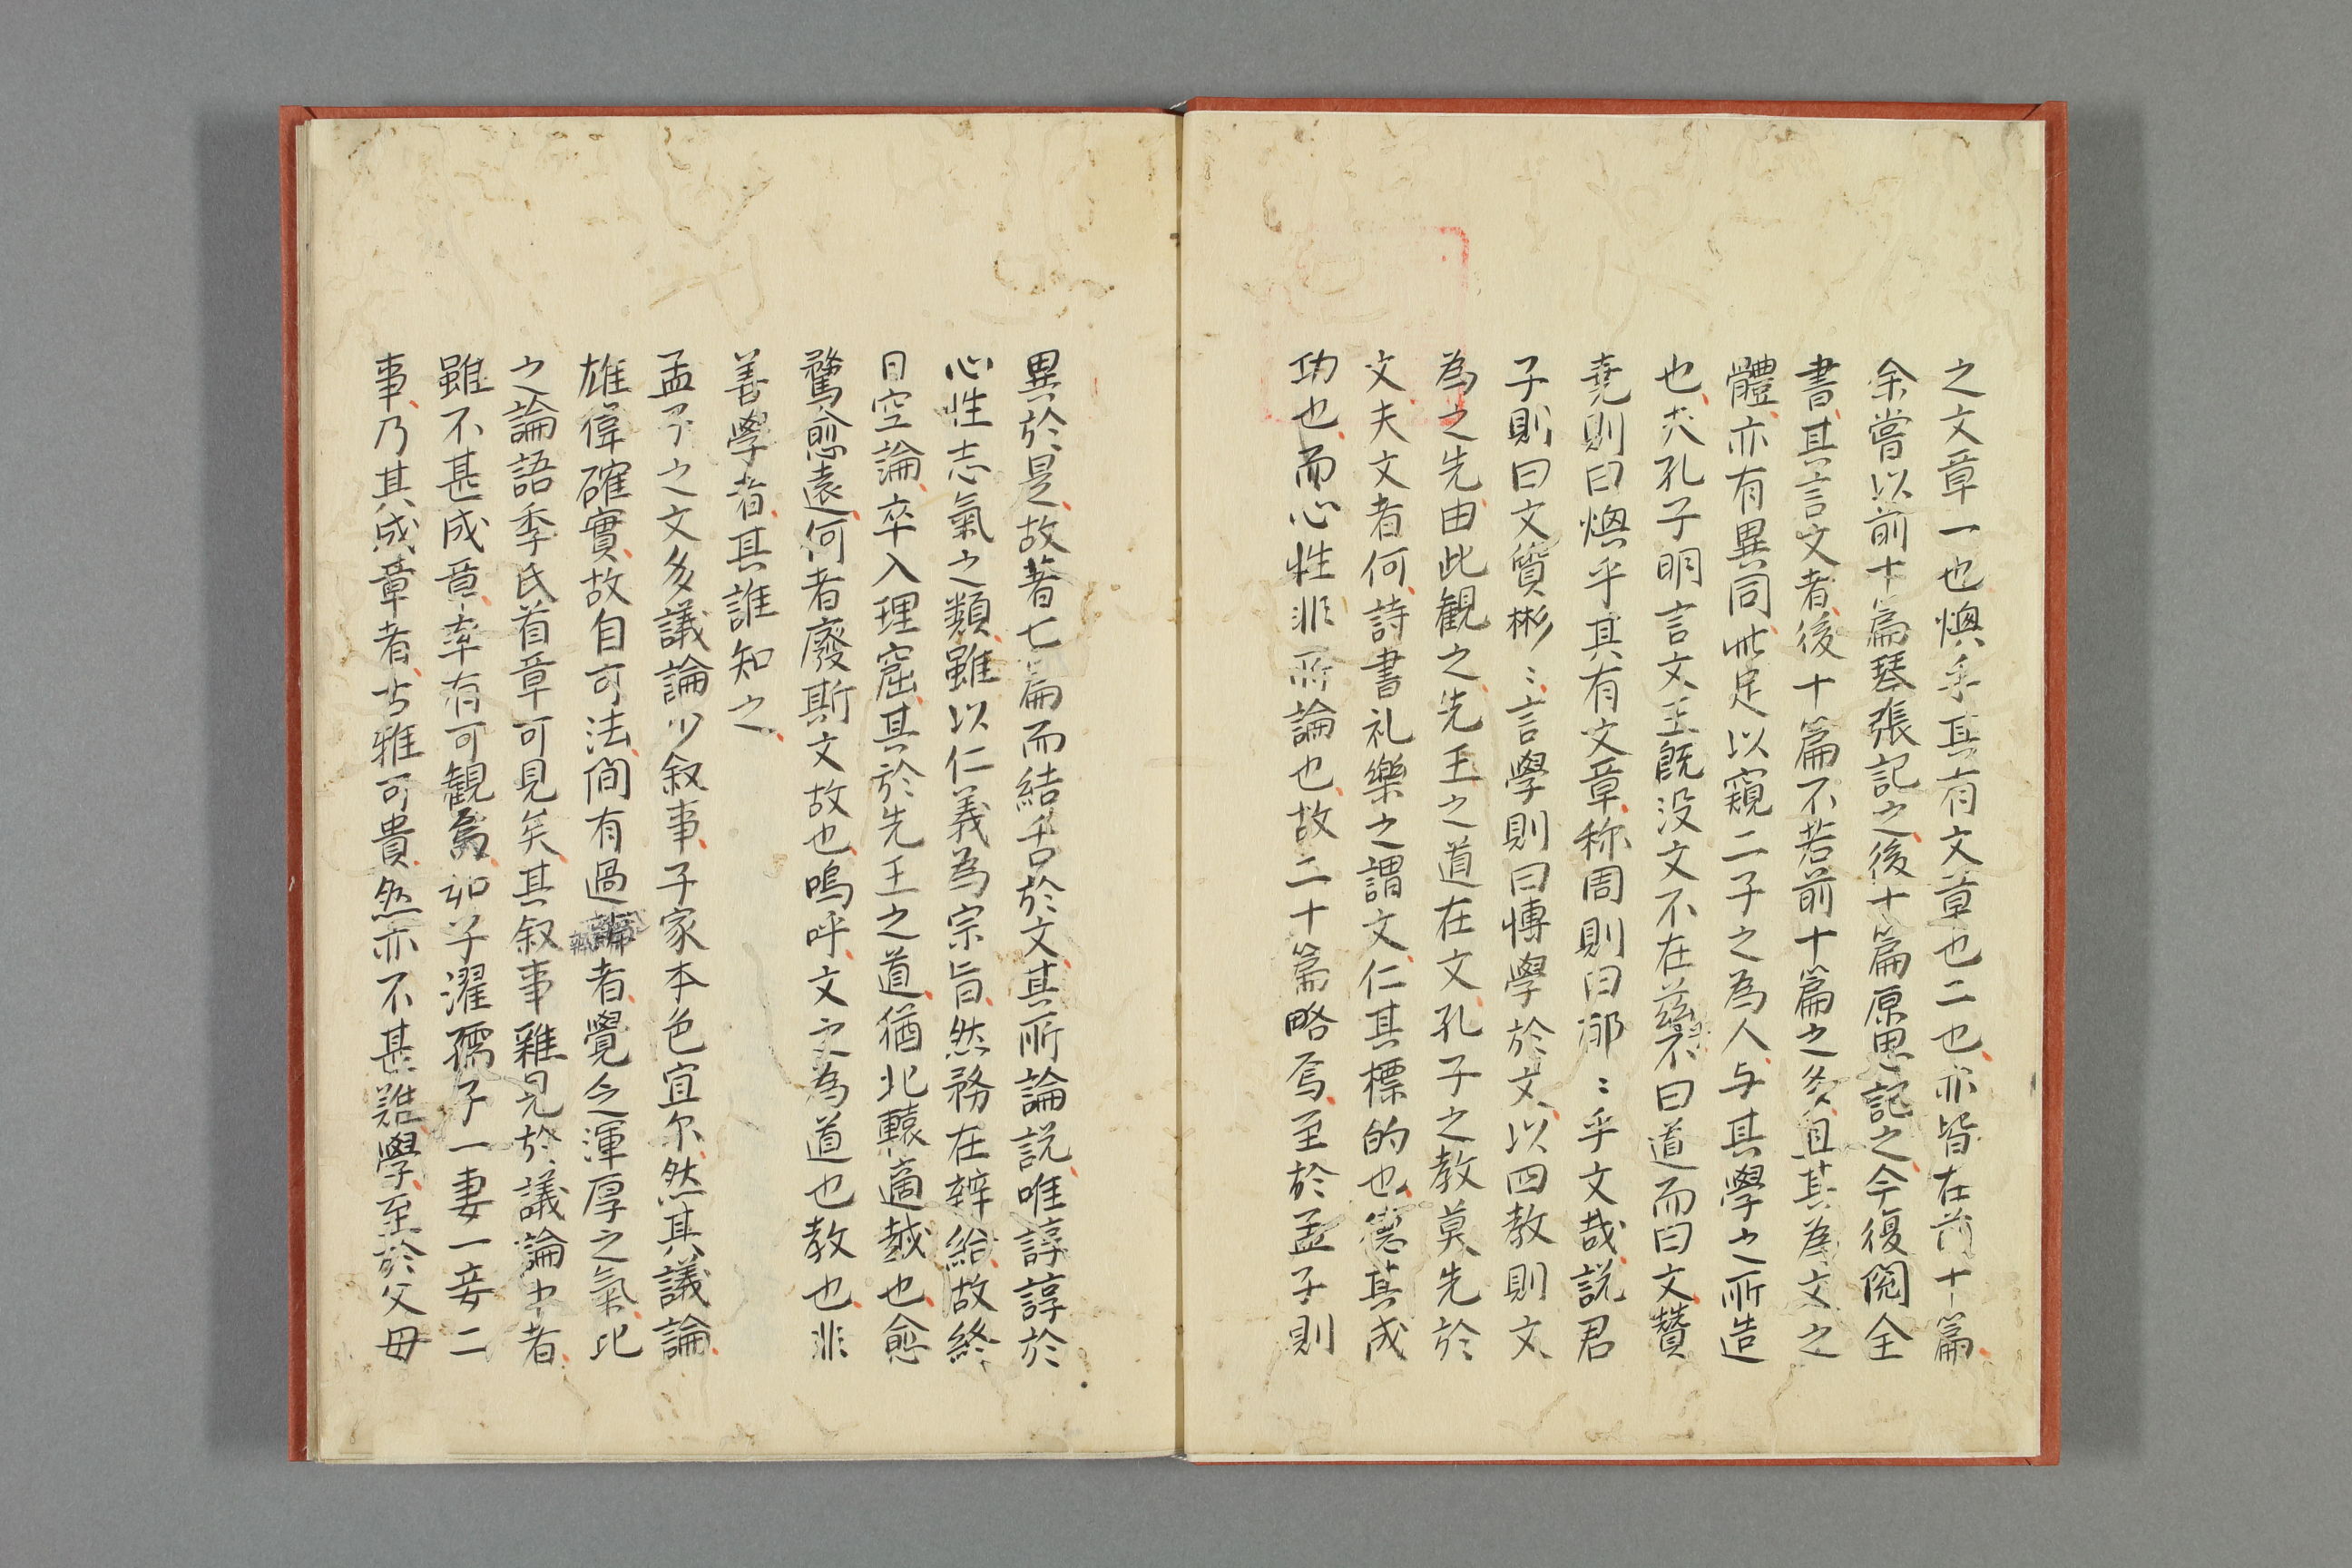 之文章一也煥乎其有文章也二也亦皆在前十篇
余嘗以前十篇琴張記之後十篇原思記之今復閲全
書其言文者後十篇不若前十篇之多且其為文之
體亦有異同此足以窺二子之為人与其學之所造
也夫孔子明言文王既没文不在茲不曰道而曰文賛
堯則曰煥乎其有文章称周則曰郁〻乎文哉説君
子則曰文質彬〻言學則曰博學於文以四教則文
為之先由此観之先王之道在文孔子之教莫先於
文夫文者何詩書礼樂之謂文仁其標的也德其成
功也而心性非所論也故二十篇略焉至於孟子則
異於是故著七篇而結舌於文其所論説唯諄諄於
心性志氣之類雖以仁義為宗旨然務在辨給故終
日空論卒入理窟其於先王之道猶北轅適越也愈
騖愈遠何者廢斯文故也嗚呼文之為道也教也非
善學者其誰知之
孟子之文多議論少叙事子家本色宜尔然其議論
雄偉確實故自可法間有過者覺乏渾厚之氣比
之論語季氏首章可見矣其叙事雖見於議論中者
雖不甚成章率有可観焉如子濯孺子一妻一妾二
事乃其成章者古雅可貴然亦不甚難學至於父母